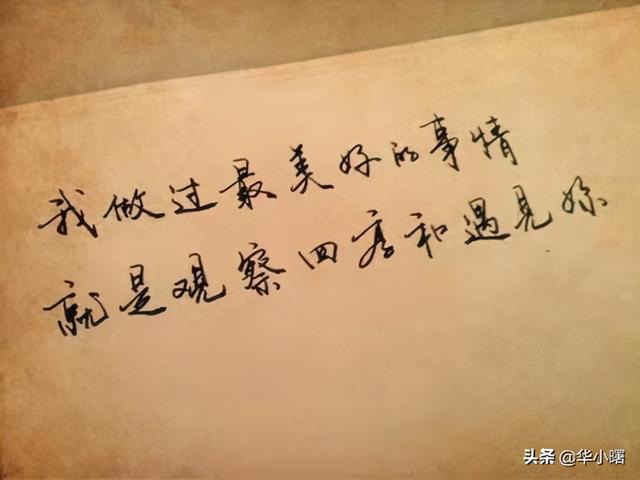 我做过最美好的事情
就是观察四季和遇见你
头条 @华小曙